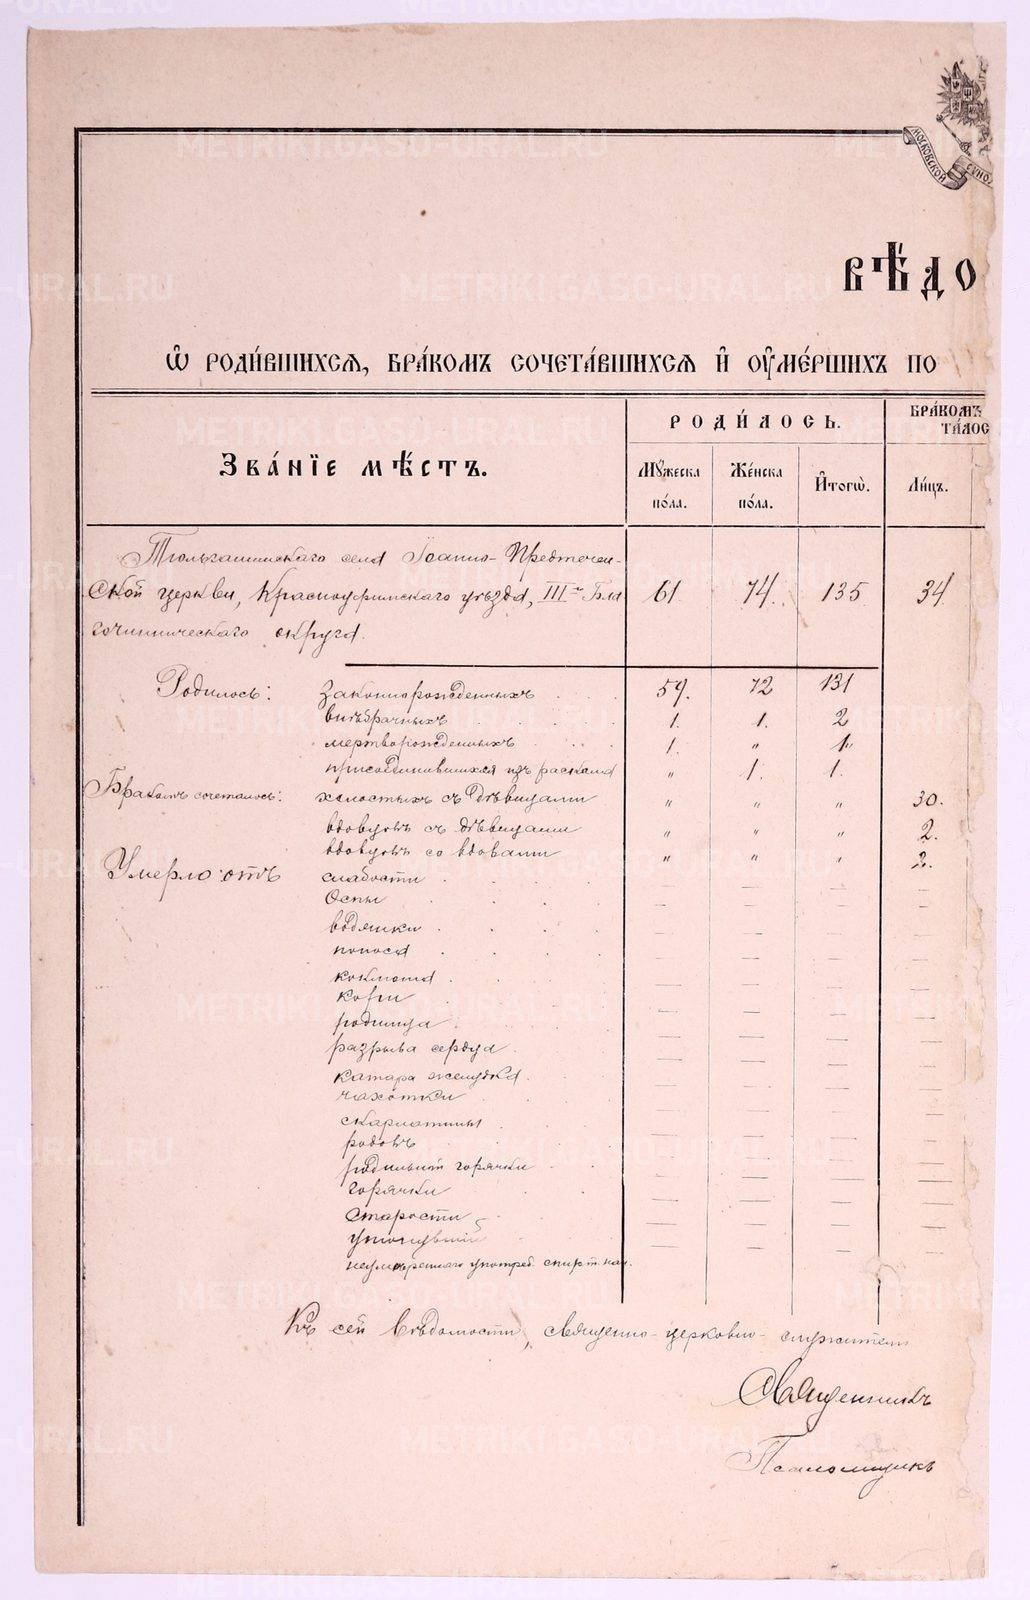 МОСКОВСКОЙ
СѴНО
ВѢДО
Ѡ РОДИ́ВШИХСѦ, БРА́КОМЪ СОЧЕТА́ВШИХСѦ И҆ ОУ҆МЕ́РШИХЪ ПО
ЗВА́НІЕ МѢ́СТЪ.
РОДИ́ЛОСЬ.
БРА́КОМЪ
ТА́ЛОС
Мꙋ́жеска по́ла.
Же́нска по́ла.
И҆тогѡ̀.
Ли́цъ.
Тюльгашинскаго села Іоанно-Предтечен-
ской церкви, Красноуфимскаго уѣзда, III го Бла
гочинническаго округа.
61. 74. 135 34
Родилось: законнорожденныхъ 59. 72 131
внѣбрачныхъ 1. 1. 2
мертворожденныхъ 1. " 1
присоединившихся изъ раскола " 1. 1.
Бракомъ сочеталось: холостыхъ съ дѣвицами " " " 30.
вдовцовъ съ дѣвицами " " " 2.
вдовцовъ со вдовами " " " 2.
Умерло отъ слабости
Оспы
водянки
поноса
коклюша
кори
родимца
разрыва сердца
катара желудка
чахотки
скарлатины
родовъ
родильной горячки
горячки
старости
утонувшій
неумѣреннаго употреб. спирт. нап.
Къ сей вѣдомости, священно-церковно-служители
Священникъ
Псаломщикъ
METRIKI.GASO-URAL.RU